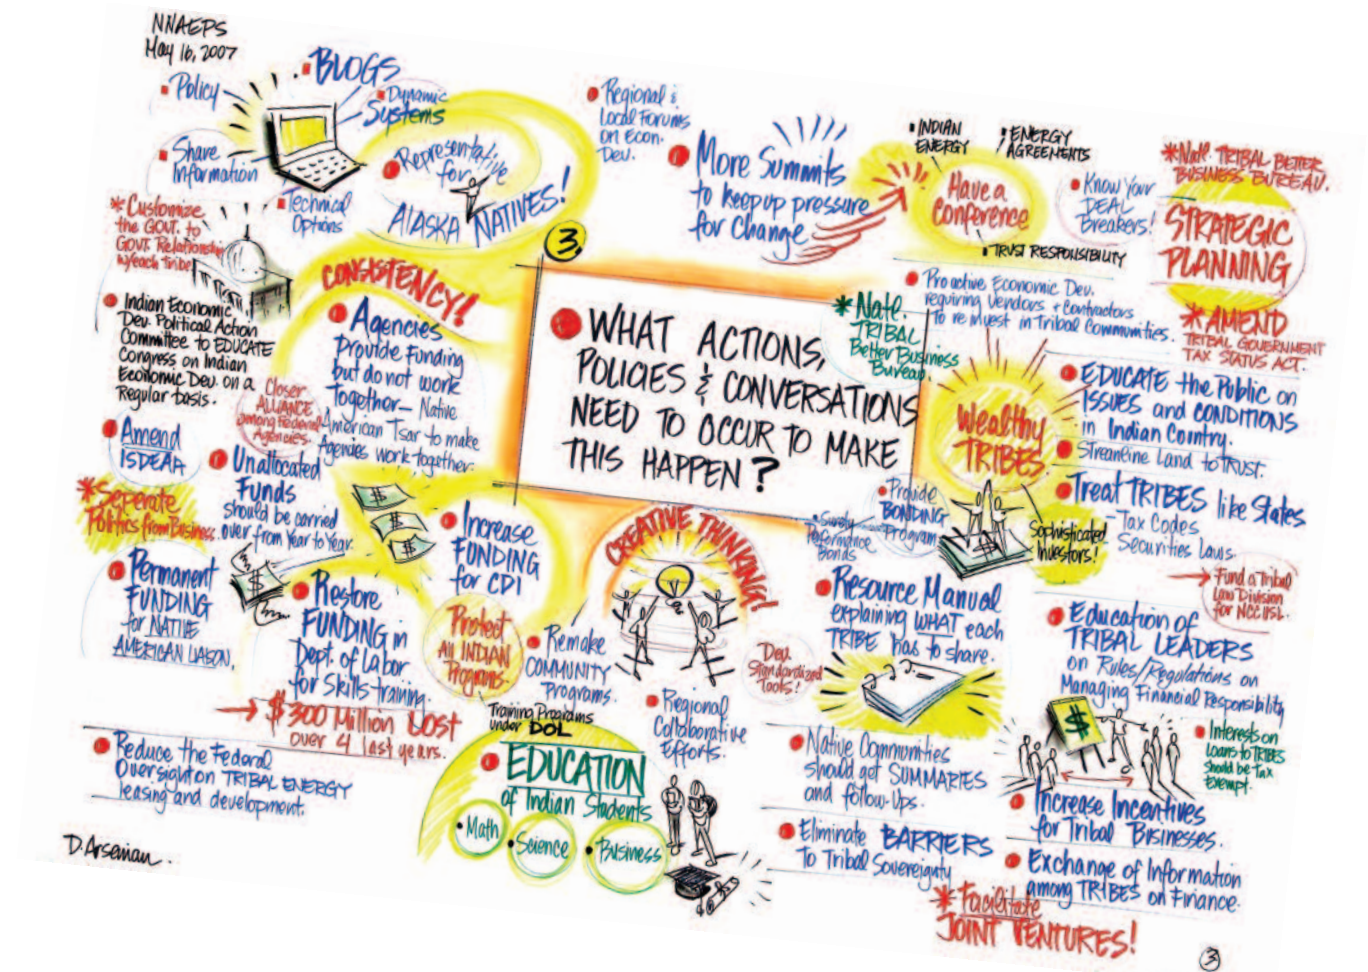 NNAEPS
May 16, 2007
BLOGS
Policy
Dynamic
Systems
Share
Information
Technical
Options
Representative
for
ALASKA NATIVES!
Regional &
Local Forums
on Econ.
Dev.
More Summits
to keep up pressure
for Change
INDIAN
ENERGY
ENERGY
AGREEMENTS
Have a
Conference
TRUST RESPONSIBILITY
Know Your
DEAL
Breakers!
*Natl. TRIBAL BETTER
BUSINESS BUREAU.
STRATEGIC
PLANNING
*AMEND
TRIBAL GOVERNMENT
TAX STATUS ACT.
*Customize
the GOVT. to
GOVT. Relationship
w/each Tribe
Indian Economic
Dev. Political Action
Committee to EDUCATE
Congress on Indian
Economic Dev. on a
Regular basis.
CONSISTENCY!
Agencies
provide Funding
but do not work
Together— Native
American Tsar to make
Agencies work together.
Closer
ALLIANCE
among Federal
Agencies.
3.
WHAT ACTIONS,
POLICIES & CONVERSATIONS
NEED TO OCCUR TO MAKE
THIS HAPPEN?
*Natl.
TRIBAL
Better Business
Bureau.
Proactive Economic Dev.
requiring Vendors + Contractors
To reinvest in Tribal Communities.
Wealthy
TRIBES
Sophisticated
Investors!
EDUCATE the Public on
ISSUES and CONDITIONS
in Indian Country.
Streamline Land to TRUST.
Treat TRIBES like States
-Tax Codes
Securities Laws.
Fund a Tribal
Law Division
for NCCUSL.
Amend
ISDEAA
*Seperate
Politics from Business.
Unallocated
Funds
should be carried
over from Year to Year.
Permanent
FUNDING
for NATIVE
AMERICAN LIASON.
Restore
FUNDING in
Dept. of Labor
for Skills training.
$300 Million LOST
over 4 last years.
Increase
FUNDING
for CDI
Protect
All INDIAN
Programs.
CREATIVE THINKING!
Remake
COMMUNITY
Programs.
Regional
Collaborative
Efforts.
Dev.
Standardized
Tools!
Provide
BONDING
Program
Surety
Performance
Bonds
Resource Manual
explaining WHAT each
TRIBE has to share.
Education of
TRIBAL LEADERS
on Rules/Regulations on
Managing Financial Responsibility
Interests on
Loans to TRIBES
should be tax
exempt.
Reduce the Federal
Oversight on TRIBAL ENERGY
leasing and development.
Training Programs
under DOL
EDUCATION
of Indian Students
Math
Science
Business
Native Communities
should get SUMMARIES
and follow-ups.
Eliminate BARRIERS
To Tribal Sovereignty
Increase Incentives
for Tribal Businesses.
Exchange of Information
among TRIBES on Finance.
*Facilitate
JOINT VENTURES!
D. Arsenian.
3